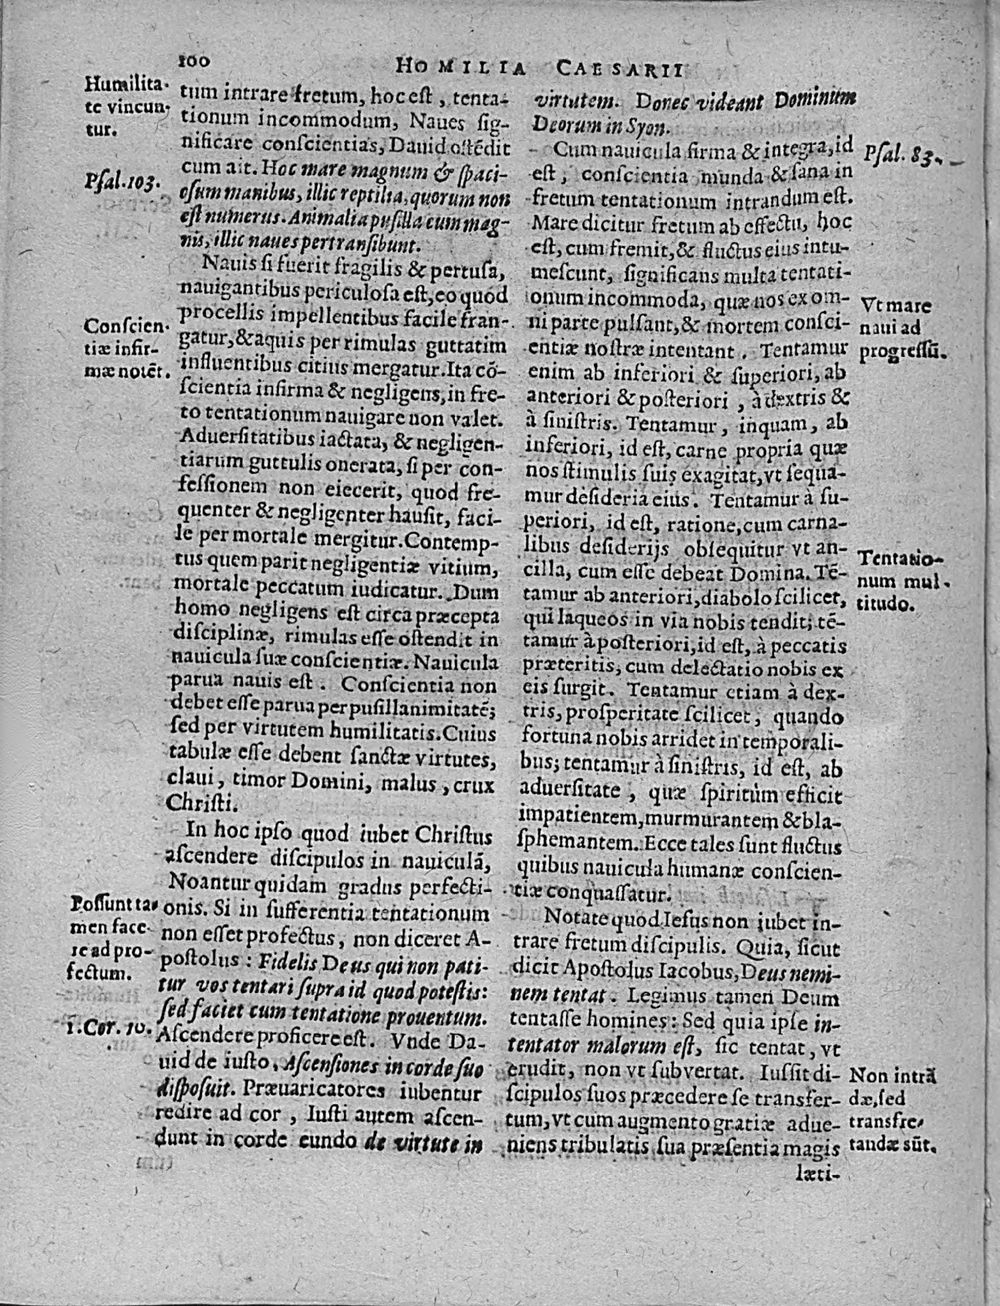 100
HOMILIA CAESARII
Humilita-
te vincun-
tur.
Psal. 103.
Conscien-
tiæ infir-
mæ notẽt.
Possunt ta-
men face-
re ad pro-
fectum.
1. Cor. 10.
tum intrare fretum, hoc est, tenta-
tionum incommodum, Naues sig-
nificare conscientias, Dauid ostẽdit
cum ait. Hoc mare magnum & spaci-
osum manibus, illic reptilia, quorum non
est numerus. Animalia pusilla cum mag-
nis, illic naues pertransibunt.
Nauis si fuerit fragilis & pertusa,
nauigantibus periculosa est, eo quod
procellis impellentibus facile fran-
gatur, & aquis per rimulas guttatim
influentibus citius mergatur. Ita cõ-
scientia infirma & negligens, in fre-
to tentationum nauigare non valet.
Aduersitatibus iactata, & negligen-
tiarum guttulis onerata, si per con-
fessionem non eiecerit, quod fre-
quenter & negligenter hausit, faci-
le per mortale mergitur. Contemp-
tus quem parit negligentiæ vitium,
mortale peccatum iudicatur. Dum
homo negligens est circa præcepta
disciplinæ, rimulas esse ostendit in
nauicula suæ conscientiæ. Nauicula
parua nauis est. Conscientia non
debet esse parua per pusillanimitatẽ;
sed per virtutem humilitatis. Cuius
tabulæ esse debent sanctæ virtutes,
claui, timor Domini, malus, crux
Christi.
In hoc ipso quod iubet Christus
ascendere discipulos in nauiculã,
Noantur quidam gradus perfecti-
onis. Si in sufferentia tentationum
non esset profectus, non diceret A-
postolus: Fidelis Deus qui non pati-
tur vos tentari supra id quod potestis:
sed faciet cum tentatione prouentum.
Ascendere proficere est. Vnde Da-
uid de iusto, Ascensiones in corde suo
disposuit. Præuaricatores iubentur
redire ad cor, Iusti autem ascen-
dunt in corde eundo de virtute in
virtutem. Donec videant Dominum
Deorum in Syon.
Cum nauicula firma & integra, id
est, conscientia munda & sana in
fretum tentationum intrandum est.
Mare dicitur fretum ab effectu, hoc
est, cum fremit, & fluctus eius intu-
mescunt, significans multa tentati-
onum incommoda, quæ nos ex om-
ni parte pulsant, & mortem consci-
entiæ nostræ intentant. Tentamur
enim ab inferiori & superiori, ab
anteriori & posteriori, à dextris &
à sinistris. Tentamur, inquam, ab
inferiori, id est, carne propria quæ
nos stimulis suis exagitat, vt sequa-
mur desideria eius. Tentamur à su-
periori, id est, ratione, cum carna-
libus desiderijs obsequitur vt an-
cilla, cum esse debeat Domina. Tẽ-
tamur ab anteriori, diabolo scilicet,
qui laqueos in via nobis tendit; tẽ-
tamur à posteriori, id est, à peccatis
præteritis, cum delectatio nobis ex
eis surgit. Tentamur etiam à dex-
tris, prosperitate scilicet, quando
fortuna nobis arridet in temporali-
bus; tentamur à sinistris, id est, ab
aduersitate, quæ spiritum efficit
impatientem, murmurantem & bla-
sphemantem. Ecce tales sunt fluctus
quibus nauicula humanæ conscien-
tiæ conquassatur.
Notate quod Iesus non iubet in-
trare fretum discipulis. Quia, sicut
dicit Apostolus Iacobus, Deus nemi-
nem tentat. Legimus tamen Deum
tentasse homines: Sed quia ipse in-
tentator malorum est, sic tentat, vt
erudit, non vt subvertat. Iussit di-
scipulos suos præcedere se transfer-
tum, vt cum augmento gratiæ adue-
niens tribulatis sua præsentia magis
læti-
Psal. 83.
Vt mare
naui ad
progressũ.
Tentatio-
num mul-
titudo.
Non intrã
dæ, sed
transfre-
tandæ sũt.